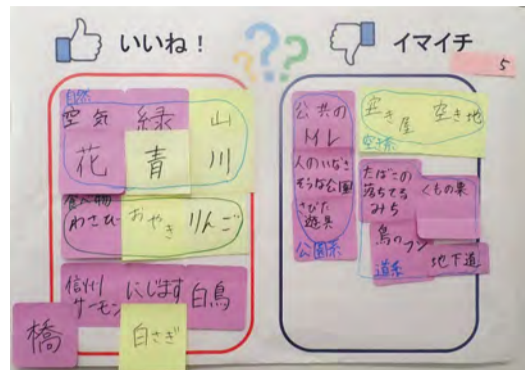 いいね！
???
イマイチ
5
自然
空気 緑 山
花 青 川
食べ物
わさび おやき りんご
信州
サーモン にじます 白鳥
橋 白さぎ
公共の
トイレ
人のいなさ
そうな公園
さびた
遊具
公園系
空き屋 空き地
空き系
たばこの
落ちてる
みち
くもの巣
鳥のフン
道系
地下道